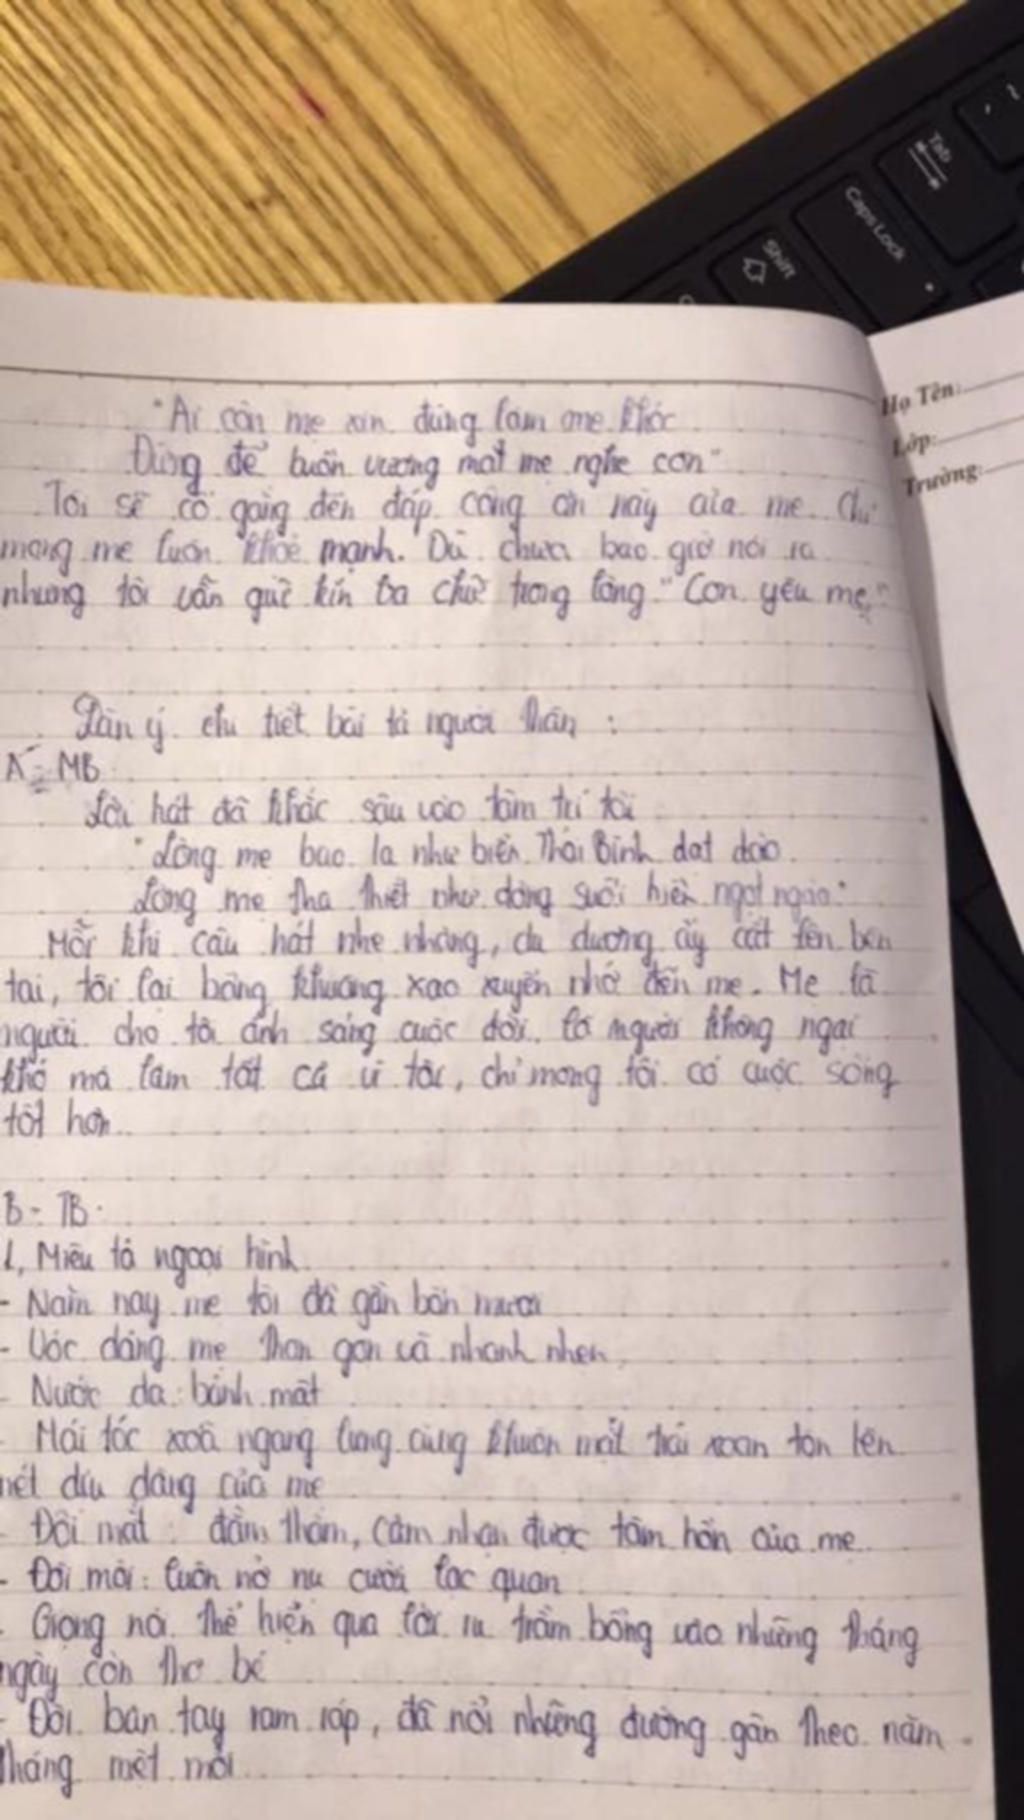 ~
Tab
Caps Lock
Shift
Họ Tên:
Lớp:
Trường:
"Ai còn mẹ xin đừng làm mẹ khóc
Đừng để buồn vương mắt mẹ nghe con"
Tôi sẽ cố gắng đền đáp công ơn này của mẹ. Chỉ
mong mẹ luôn khoẻ mạnh. Dù chưa bao giờ nói ra
nhưng tôi vẫn giữ kín ba chữ trong lòng "Con yêu mẹ."
Dàn ý chi tiết bài tả người thân:
A - MB
Lời hát đã khắc sâu vào tâm trí tôi
"Lòng mẹ bao la như biển Thái Bình dạt dào
Lòng mẹ tha thiết như dòng suối hiền ngọt ngào"
Mỗi khi câu hát nhẹ nhàng, du dương ấy cất lên bên
tai, tôi lại bâng khuâng xao xuyến nhớ đến mẹ. Mẹ là
người cho tôi ánh sáng cuộc đời, là người không ngại
khó mà làm tất cả vì tôi, chỉ mong tôi có cuộc sống
tốt hơn.
B - TB.
1, Miêu tả ngoại hình
- Năm nay mẹ tôi đã gần bốn mươi
- Vóc dáng mẹ thon gọn và nhanh nhẹn
- Nước da: bánh mật
- Mái tóc xoã ngang lưng cùng khuôn mặt trái xoan tôn lên
nét dịu dàng của mẹ
- Đôi mắt: đằm thắm, cảm nhận được tâm hồn của mẹ
- Đôi môi: luôn nở nụ cười lạc quan
- Giọng nói thể hiện qua lời ru trầm bổng vào những tháng
ngày còn thơ bé
- Đôi bàn tay ram ráp, đã nổi những đường gân theo năm
tháng mệt mỏi